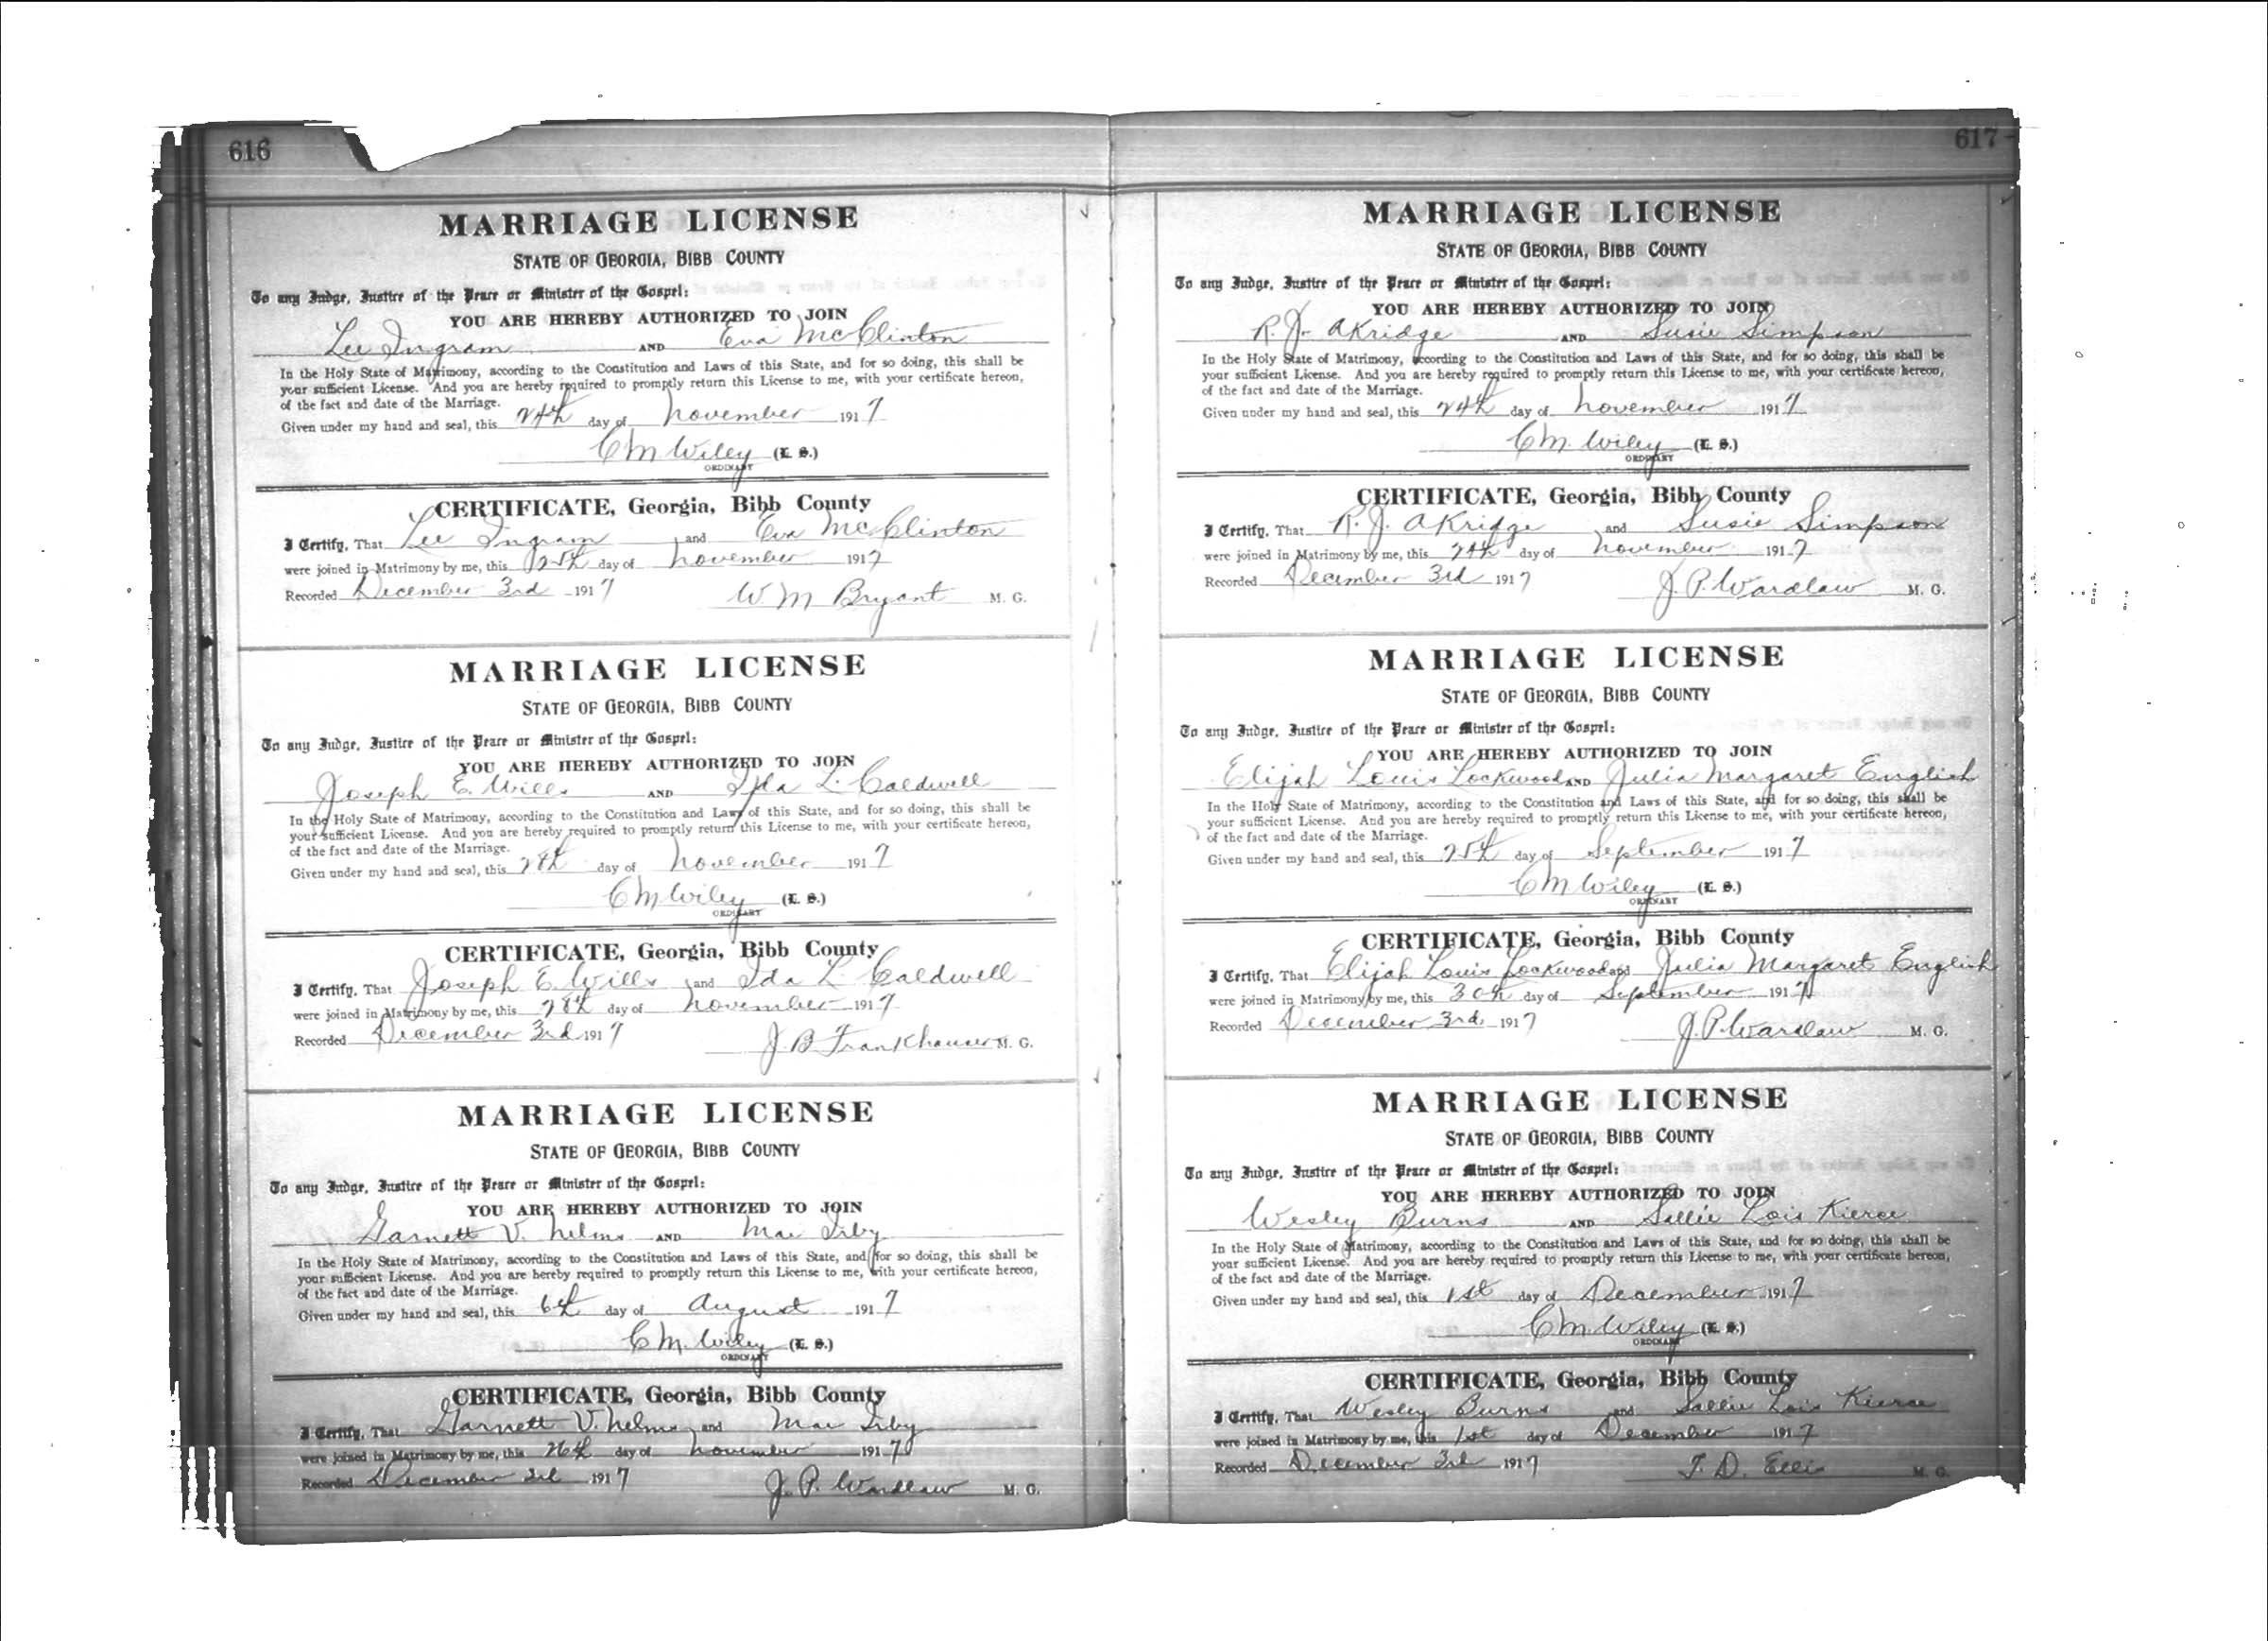 616
MARRIAGE LICENSE
STATE OF GEORGIA, BIBB COUNTY
To any Judge, Justice of the Peace or Minister of the Gospel:
YOU ARE HEREBY AUTHORIZED TO JOIN
Lee Ingram AND Eva McClinton
In the Holy State of Matrimony, according to the Constitution and Laws of this State, and for so doing, this shall be
your sufficient License. And you are hereby required to promptly return this License to me, with your certificate hereon,
of the fact and date of the Marriage.
Given under my hand and seal, this 24th day of November 1917
C M Wiley (L. S.)
ORDINARY
CERTIFICATE, Georgia, Bibb County
I Certify, That Lee Ingram and Eva McClinton
were joined in Matrimony by me, this 25th day of November 1917
Recorded December 3rd 1917 W M Bryant M. G.
MARRIAGE LICENSE
STATE OF GEORGIA, BIBB COUNTY
To any Judge, Justice of the Peace or Minister of the Gospel:
YOU ARE HEREBY AUTHORIZED TO JOIN
Joseph E. Wills AND Ida L. Caldwell
In the Holy State of Matrimony, according to the Constitution and Laws of this State, and for so doing, this shall be
your sufficient License. And you are hereby required to promptly return this License to me, with your certificate hereon,
of the fact and date of the Marriage.
Given under my hand and seal, this 28th day of November 1917
C M Wiley (L. S.)
ORDINARY
CERTIFICATE, Georgia, Bibb County
I Certify, That Joseph E. Wills and Ida L. Caldwell
were joined in Matrimony by me, this 28th day of November 1917
Recorded December 3rd 1917 J. B. Frankhauser M. G.
MARRIAGE LICENSE
STATE OF GEORGIA, BIBB COUNTY
To any Judge, Justice of the Peace or Minister of the Gospel:
YOU ARE HEREBY AUTHORIZED TO JOIN
Garnett V. Nelms AND Mae Irby
In the Holy State of Matrimony, according to the Constitution and Laws of this State, and for so doing, this shall be
your sufficient License. And you are hereby required to promptly return this License to me, with your certificate hereon,
of the fact and date of the Marriage.
Given under my hand and seal, this 6th day of August 1917
C M. Wiley (L. S.)
ORDINARY
CERTIFICATE, Georgia, Bibb County
I Certify, That Garnett V. Nelms and Mae Irby
were joined in Matrimony by me, this 26th day of November 1917
Recorded December 3rd 1917 J. P. Wardlaw M. G.
617
MARRIAGE LICENSE
STATE OF GEORGIA, BIBB COUNTY
To any Judge, Justice of the Peace or Minister of the Gospel:
YOU ARE HEREBY AUTHORIZED TO JOIN
R. J. Akridge AND Susie Simpson
In the Holy State of Matrimony, according to the Constitution and Laws of this State, and for so doing, this shall be
your sufficient License. And you are hereby required to promptly return this License to me, with your certificate hereon,
of the fact and date of the Marriage.
Given under my hand and seal, this 24th day of November 1917
C M. Wiley (L. S.)
ORDINARY
CERTIFICATE, Georgia, Bibb County
I Certify, That R. J. Akridge and Susie Simpson
were joined in Matrimony by me, this 24th day of November 1917
Recorded December 3rd 1917 J. P. Wardlaw M. G.
MARRIAGE LICENSE
STATE OF GEORGIA, BIBB COUNTY
To any Judge, Justice of the Peace or Minister of the Gospel:
YOU ARE HEREBY AUTHORIZED TO JOIN
Elijah Louis Lockwood AND Julia Margaret English
In the Holy State of Matrimony, according to the Constitution and Laws of this State, and for so doing, this shall be
your sufficient License. And you are hereby required to promptly return this License to me, with your certificate hereon,
of the fact and date of the Marriage.
Given under my hand and seal, this 25th day of September 1917
C M Wiley (L. S.)
ORDINARY
CERTIFICATE, Georgia, Bibb County
I Certify, That Elijah Louis Lockwood and Julia Margaret English
were joined in Matrimony by me, this 30th day of September 1917
Recorded December 3rd 1917 J. P. Wardlaw M. G.
MARRIAGE LICENSE
STATE OF GEORGIA, BIBB COUNTY
To any Judge, Justice of the Peace or Minister of the Gospel:
YOU ARE HEREBY AUTHORIZED TO JOIN
Wesley Burns AND Sallie Lois Kierce
In the Holy State of Matrimony, according to the Constitution and Laws of this State, and for so doing, this shall be
your sufficient License. And you are hereby required to promptly return this License to me, with your certificate hereon,
of the fact and date of the Marriage.
Given under my hand and seal, this 1st day of December 1917
C M. Wiley (L. S.)
ORDINARY
CERTIFICATE, Georgia, Bibb County
I Certify, That Wesley Burns and Sallie Lois Kierce
were joined in Matrimony by me, this 1st day of December 1917
Recorded December 3rd 1917 T. D. Ellis M. G.